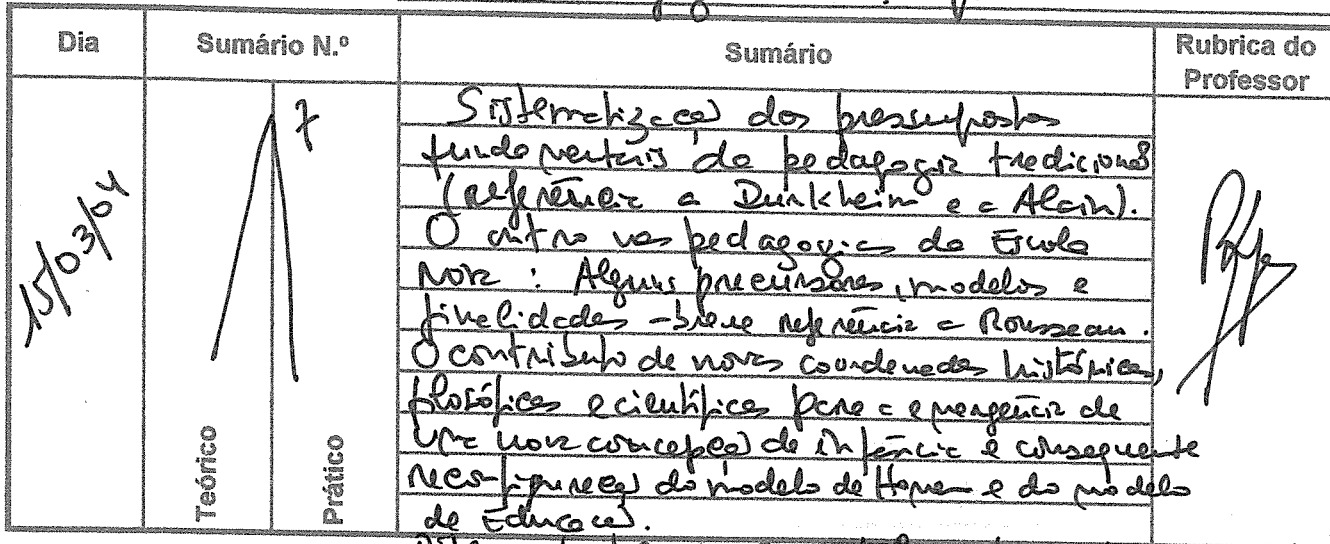 Dia Sumário N.º Sumário Rubrica do Professor
15/03/04
7
Teórico
Prático
Sistematização dos pressupostos
fundamentais da pedagogia tradicional
(referência a Durkheim e a Alain).
O nas pedagogias da Escola
Nova : Alguns precursores, modelos e
finalidades - breve referência a Rousseau.
O contributo de novas coordenadas históricas,
filosóficas e científicas para a emergência de
uma nova concepção de infância e consequente
reconfiguração do modelo de Homem e do modelo
de Educação.